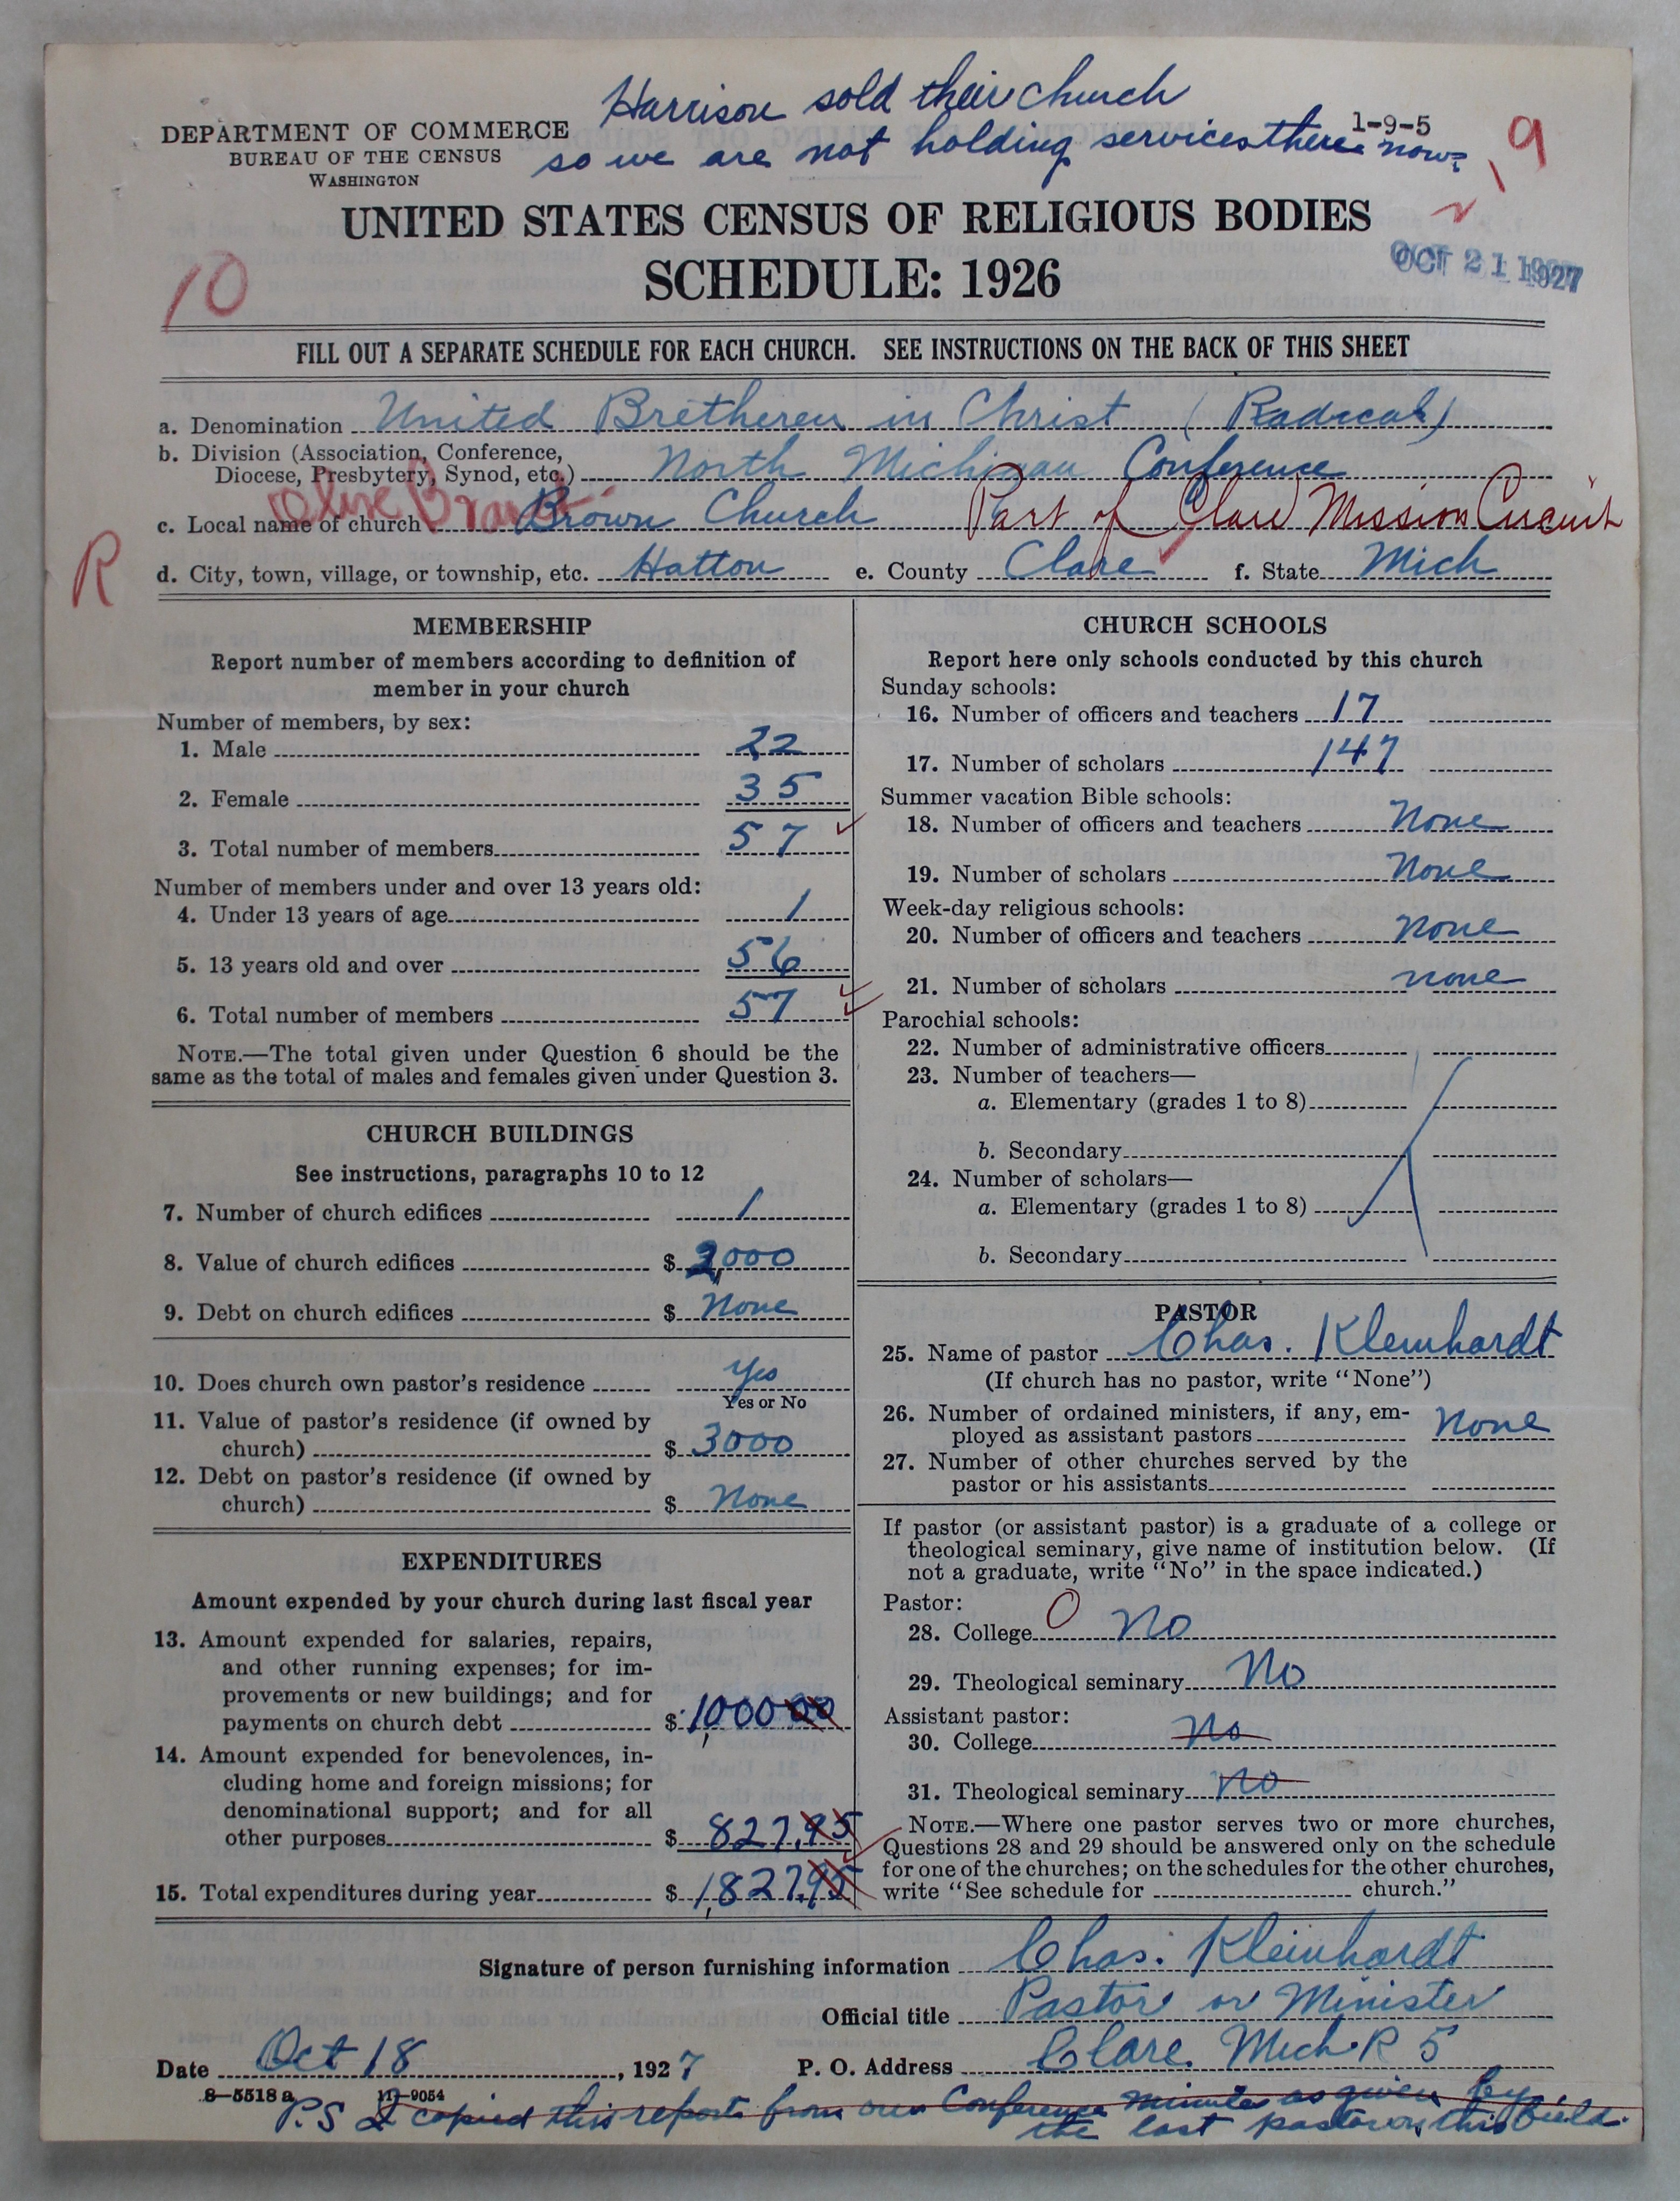 Harrison sold their church
so we are not holding services there now.
1-9-5
19
DEPARTMENT OF COMMERCE
BUREAU OF THE CENSUS
WASHINGTON
UNITED STATES CENSUS OF RELIGIOUS BODIES
SCHEDULE: 1926
OCT 21 1927
10
FILL OUT A SEPARATE SCHEDULE FOR EACH CHURCH. SEE INSTRUCTIONS ON THE BACK OF THIS SHEET
a. Denomination United Bretheren in Christ (Radical)
b. Division (Association, Conference,
Diocese, Presbytery, Synod, etc.) North Michigan Conference
c. Local name of church Brown Church Part of Clare Mission Circuit
R
d. City, town, village, or township, etc. Hatton e. County Clare f. State Mich
MEMBERSHIP
Report number of members according to definition of
member in your church
Number of members, by sex:
1. Male 22
2. Female 35
3. Total number of members 57
Number of members under and over 13 years old:
4. Under 13 years of age 1
5. 13 years old and over 56
6. Total number of members 57
NOTE.—The total given under Question 6 should be the
same as the total of males and females given under Question 3.
CHURCH BUILDINGS
See instructions, paragraphs 10 to 12
7. Number of church edifices 1
8. Value of church edifices $ 2,000
9. Debt on church edifices $ None
10. Does church own pastor's residence Yes
Yes or No
11. Value of pastor's residence (if owned by
church) $ 3000
12. Debt on pastor's residence (if owned by
church) $ None
EXPENDITURES
Amount expended by your church during last fiscal year
13. Amount expended for salaries, repairs,
and other running expenses; for im-
provements or new buildings; and for
payments on church debt $ 1,000 00
14. Amount expended for benevolences, in-
cluding home and foreign missions; for
denominational support; and for all
other purposes $ 827.95
15. Total expenditures during year $ 1,827.95
CHURCH SCHOOLS
Report here only schools conducted by this church
Sunday schools:
16. Number of officers and teachers 17
17. Number of scholars 147
Summer vacation Bible schools:
18. Number of officers and teachers None
19. Number of scholars None
Week-day religious schools:
20. Number of officers and teachers None
21. Number of scholars none
Parochial schools:
22. Number of administrative officers
23. Number of teachers—
a. Elementary (grades 1 to 8)
b. Secondary
24. Number of scholars—
a. Elementary (grades 1 to 8)
b. Secondary
PASTOR
25. Name of pastor Chas. Kleinhardt
(If church has no pastor, write "None")
26. Number of ordained ministers, if any, em-
ployed as assistant pastors None
27. Number of other churches served by the
pastor or his assistants
If pastor (or assistant pastor) is a graduate of a college or
theological seminary, give name of institution below. (If
not a graduate, write "No" in the space indicated.)
Pastor:
28. College 0 No
29. Theological seminary No
Assistant pastor:
30. College No
31. Theological seminary No
NOTE.—Where one pastor serves two or more churches,
Questions 28 and 29 should be answered only on the schedule
for one of the churches; on the schedules for the other churches,
write "See schedule for church."
Signature of person furnishing information Chas. Kleinhardt
Official title Pastor or Minister
Date Oct 18, 1927 P. O. Address Clare. Mich. R 5
8—5518 a 11—9054
P.S I copied this report from our Conference minutes as given by
the last pastor on this field.